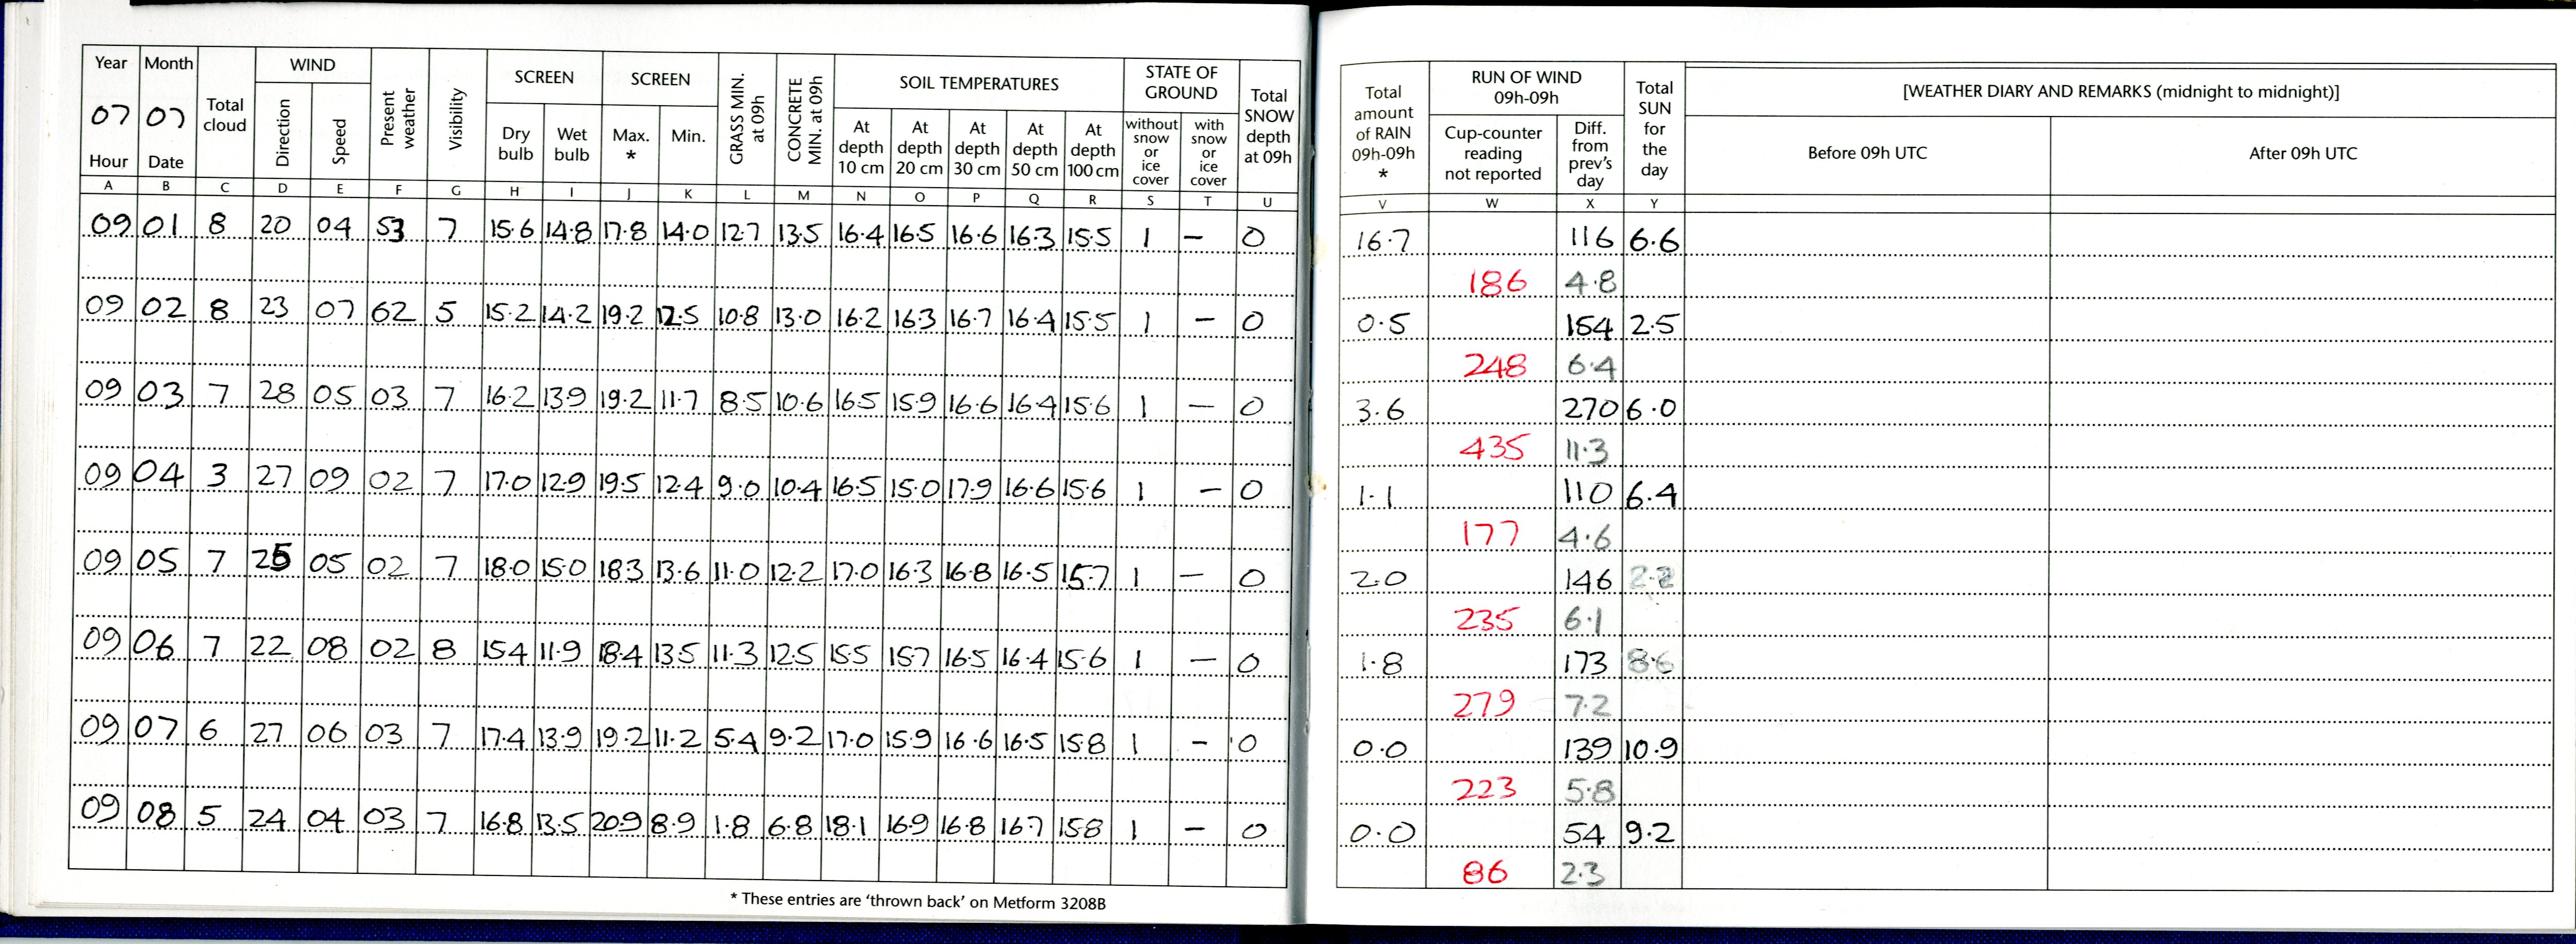 Year Month Total cloud WIND Present weather Visibility SCREEN SCREEN GRASS MIN. at 09h CONCRETE MIN. at 09h SOIL TEMPERATURES STATE OF GROUND Total SNOW depth at 09h
07 07 Direction Speed Dry bulb Wet bulb Max. * Min. At depth 10 cm At depth 20 cm At depth 30 cm At depth 50 cm At depth 100 cm without snow or ice cover with snow or ice cover
Hour Date
A B C D E F G H I J K L M N O P Q R S T U
09 01 8 20 04 53 7 15.6 14.8 17.8 14.0 12.7 13.5 16.4 16.5 16.6 16.3 15.5 1 – 0
09 02 8 23 07 62 5 15.2 14.2 19.2 12.5 10.8 13.0 16.2 163 16.7 16.4 15.5 1 – 0
09 03 7 28 05 03 7 16.2 139 19.2 11.7 8.5 10.6 16.5 15.9 16.6 16.4 15.6 1 – 0
09 04 3 27 09 02 7 17.0 12.9 19.5 12.4 9.0 10.4 16.5 15.0 17.9 16.6 15.6 1 – 0
09 05 7 25 05 02 7 18.0 15.0 183 13.6 11.0 12.2 17.0 16.3 16.8 16.5 15.7 1 – 0
09 06 7 22 08 02 8 154 11.9 18.4 13.5 11.3 12.5 15.5 157 16.5 16.4 15.6 1 – 0
09 07 6 27 06 03 7 17.4 13.9 19.2 11.2 5.4 9.2 17.0 15.9 16.6 16.5 158 1 – 0
09 08 5 24 04 03 7 16.8 13.5 20.9 8.9 1.8 6.8 18.1 16.9 16.8 16.7 158 1 – 0
* These entries are ‘thrown back’ on Metform 3208B
Total amount of RAIN 09h-09h * RUN OF WIND 09h-09h Total SUN for the day [WEATHER DIARY AND REMARKS (midnight to midnight)]
Cup-counter reading not reported Diff. from prev's day Before 09h UTC After 09h UTC
V W X Y
16.7 116 6.6
186 4.8
0.5 154 2.5
248 6.4
3.6 270 6.0
435 11.3
1.1 110 6.4
177 4.6
2.0 146 2.2
235 6.1
1.8 173 8.6
279 7.2
0.0 139 10.9
223 5.8
0.0 54 9.2
86 2.3